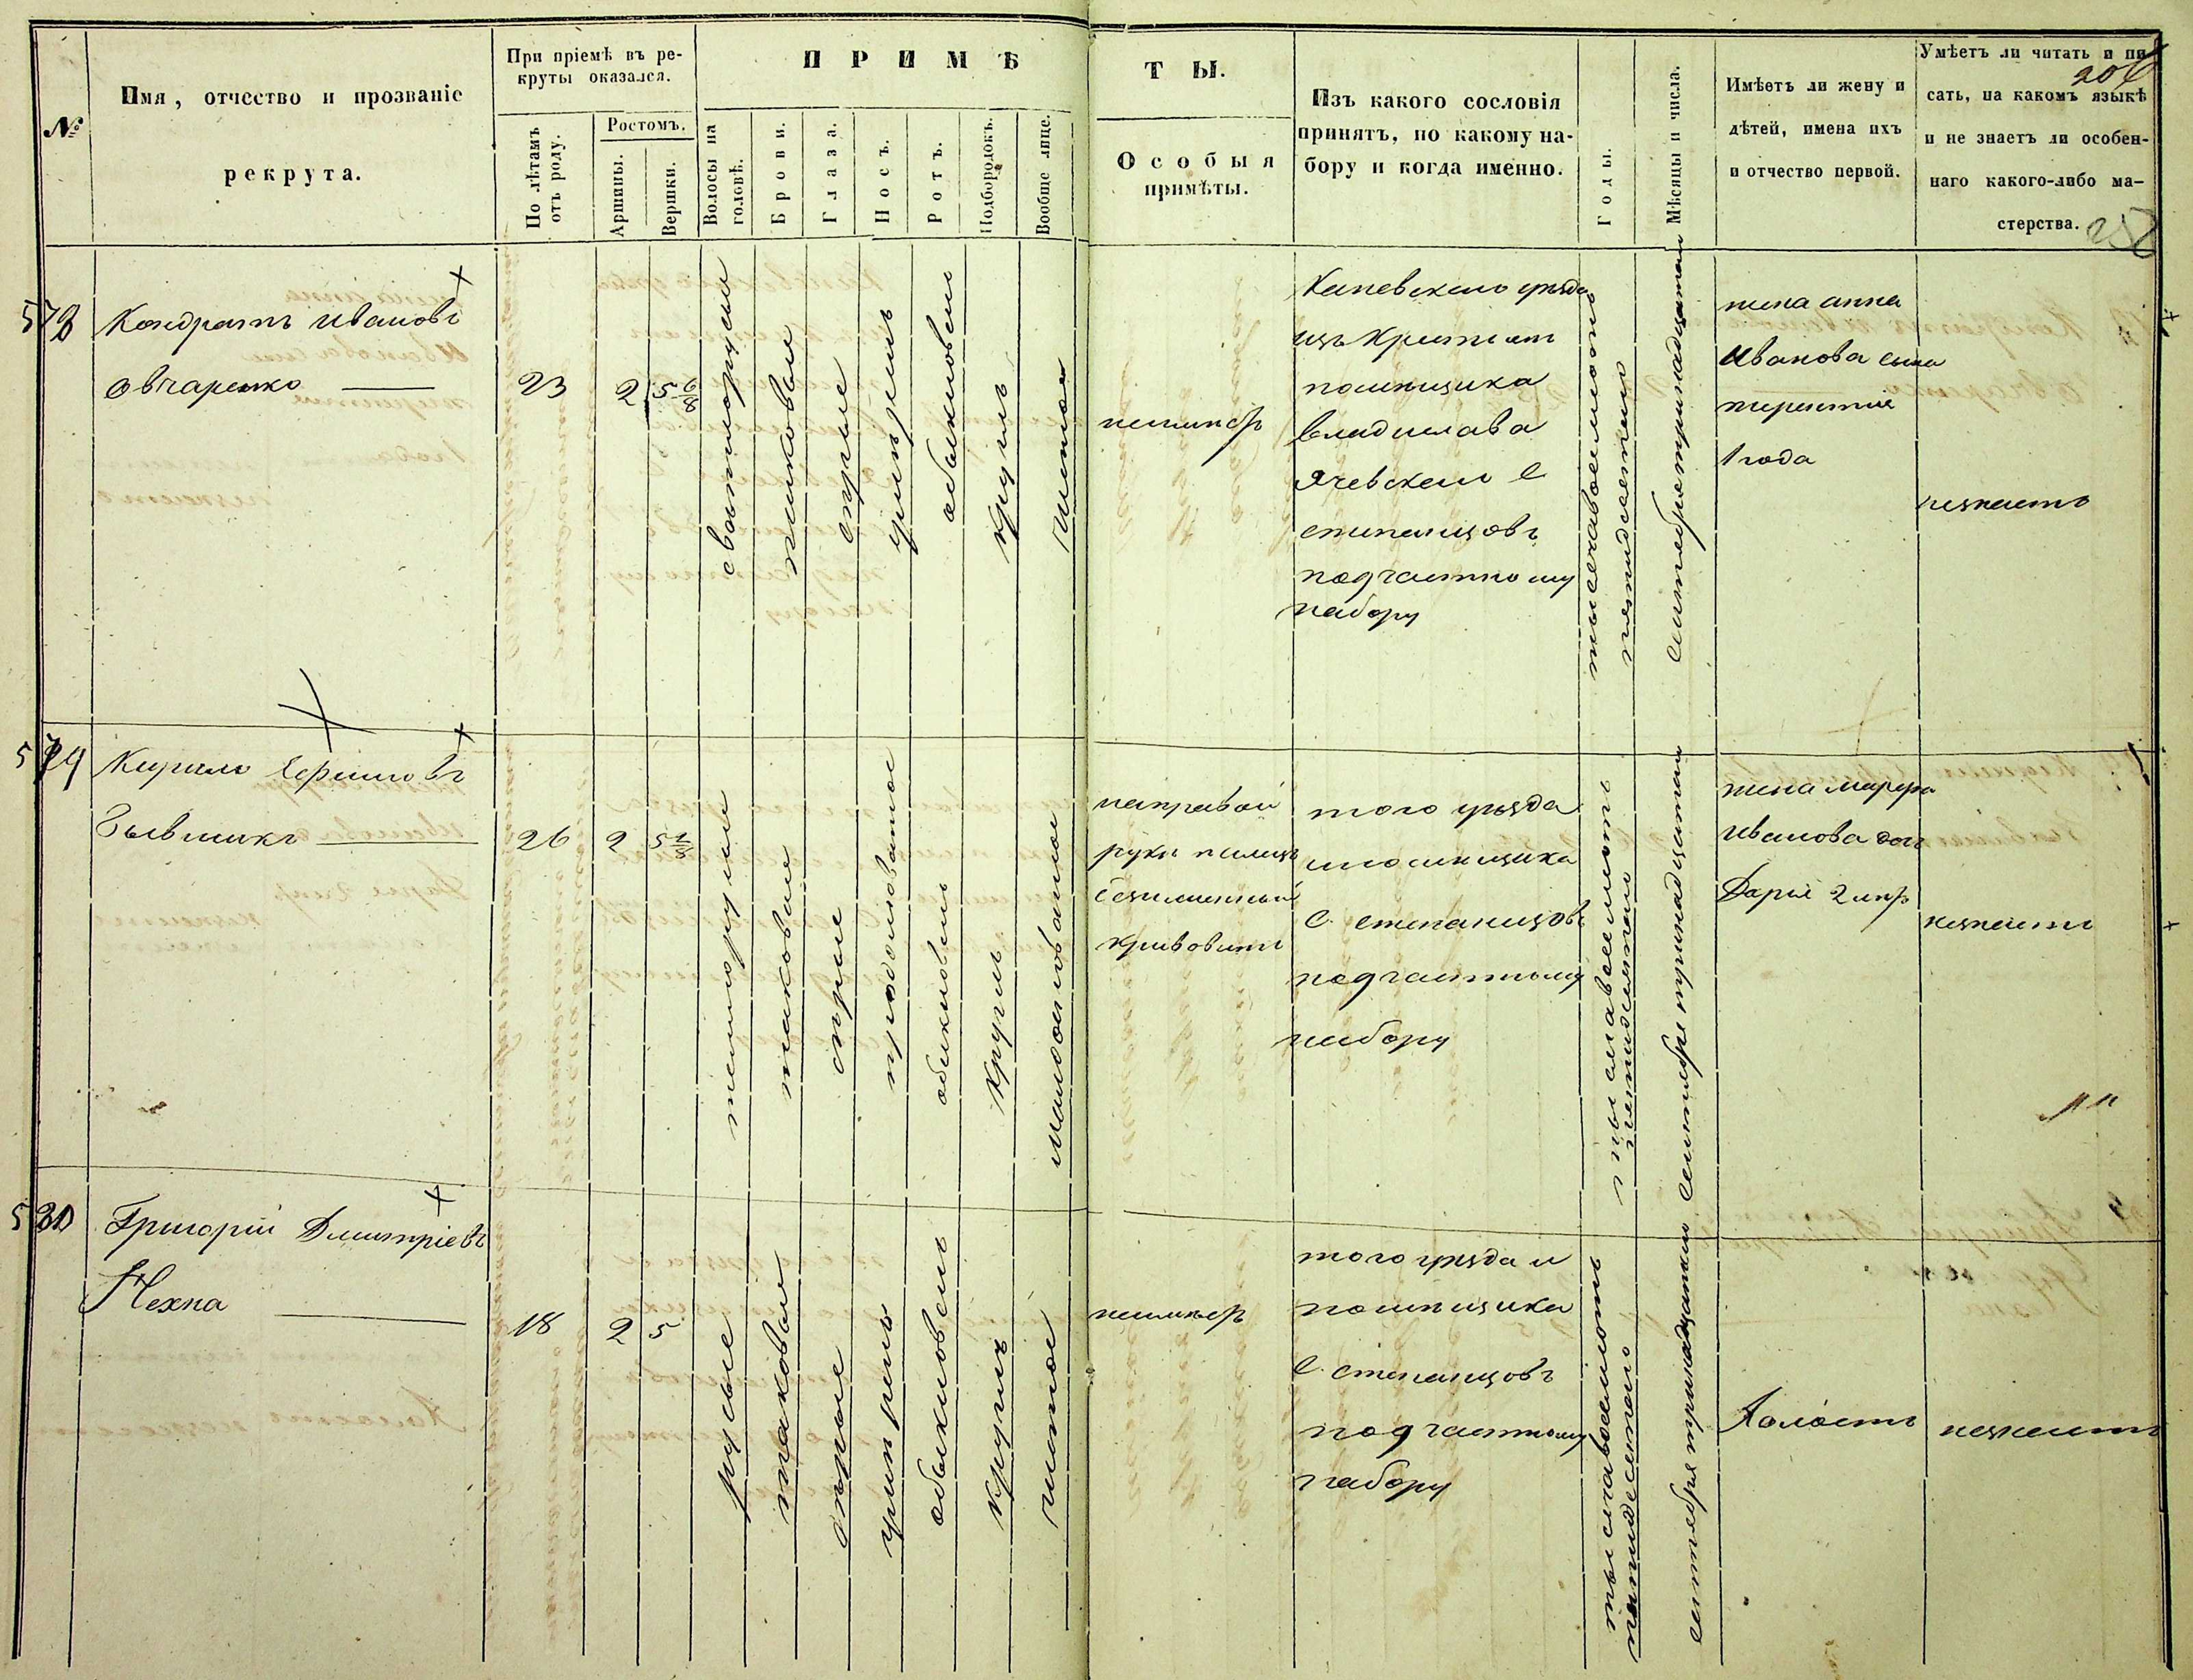 №
Имя, отчество и прозваніе
рекрута.
При пріемѣ въ ре-
круты оказался.
По лѣтамъ
отъ роду.
Ростомъ.
Аршины.
Вершки.
ПРИМѢ
Волосы на
головѣ.
Брови.
Глаза.
Носъ.
Ротъ.
Подбородокъ.
Вообще лице.
ТЫ.
Особыя
примѣты.
Изъ какого сословія
принятъ, по какому на-
бору и когда именно.
Годы.
Мѣсяцы и числа.
Имѣетъ ли жену и
дѣтей, имена ихъ
и отчество первой.
Умѣетъ ли читать и пи-
сать, на какомъ языкѣ
и не знаетъ ли особен-
наго какого-либо ма-
стерства.
578
Кондратъ Ивановъ
Овчаренко
23
2
5 6/8
свѣтлорусые
таковые
сѣрые
умѣренъ
обыкновенъ
круглъ
чистое
неимѣетъ
Каневского уѣзда
изъ крестьянъ
помѣщика
Владислава
Ячевского С
степанцовъ
подчастному
набору
тысяча восемьсотъ
пятидесятого
Сентября тринадцатого
жена анна
Иванова сынъ
терентий
1 года
незнаетъ
579
Кирило
26
2
5 1/8
темнорусые
таковые
сѣрые
продолговатое
обыкновенъ
круглъ
направой
руки палецъ
кривоватъ
того уѣзда
помѣщика
С. степанцовъ
подчастному
набору
тысяча восемьсотъ
пятидесятого
Сентября тринадцатого
жена марфа
Иванова дочь
Дарья 2 лѣтъ
незнаетъ
580
Григорій Дмитріевъ
18
2
5
русые
таковые
сѣрые
умѣренъ
обыкновенъ
круглъ
чистое
неимѣетъ
того уѣзда и
помѣщика
С. степанцовъ
подчастному
набору
тысяча восемьсотъ
пятидесятого
сентября тринадцатого
Холостъ
незнаетъ